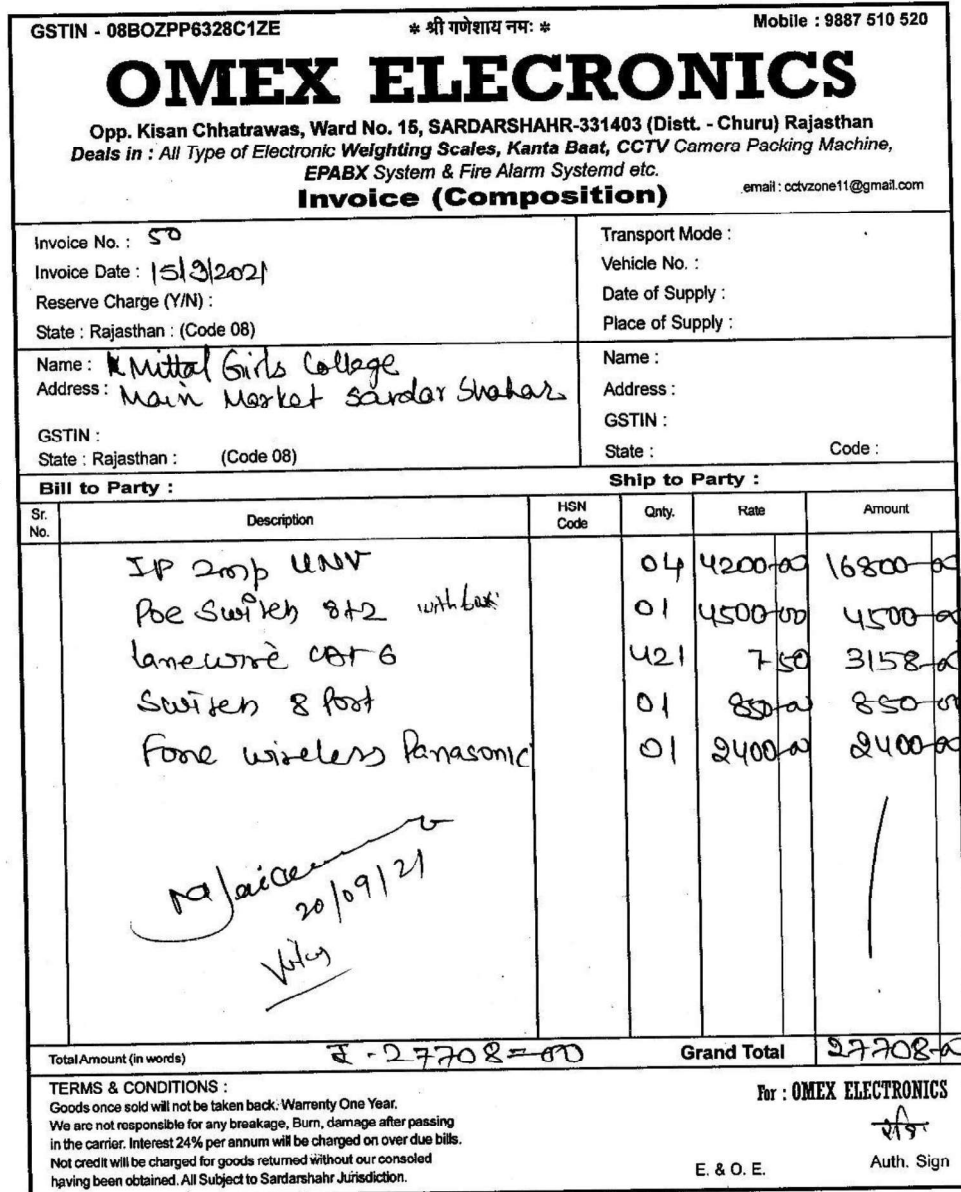 GSTIN - 08BOZPP6328C1ZE
❋ श्री गणेशाय नमः ❋
Mobile : 9887 510 520
OMEX ELECRONICS
Opp. Kisan Chhatrawas, Ward No. 15, SARDARSHAHR-331403 (Distt. - Churu) Rajasthan
Deals in : All Type of Electronic Weighting Scales, Kanta Baat, CCTV Camera Packing Machine,
EPABX System & Fire Alarm Systemd etc.
Invoice (Composition)
email : cctvzone11@gmail.com
Invoice No. : 50
Invoice Date : 15/9/2021
Reserve Charge (Y/N) :
State : Rajasthan : (Code 08)
Transport Mode :
Vehicle No. :
Date of Supply :
Place of Supply :
Name : Mittal Girls College
Address : Main Market Sardar Shahar
GSTIN :
State : Rajasthan : (Code 08)
Name :
Address :
GSTIN :
State : Code :
Bill to Party :
Ship to Party :
Sr. No. Description HSN Code Qnty. Rate Amount
IP 2mp UNV 04 4200-00 16800-00
Poe Switch 8+2 with 01 4500-00 4500-00
lanewire CAT 6 421 7-50 3158-00
Switch 8 Port 01 850-00 850-00
Fone wireless Panasonic 01 2400-00 2400-00
20/09/21
Total Amount (in words) ₹-27708=00 Grand Total 27708-00
TERMS & CONDITIONS :
Goods once sold will not be taken back. Warrenty One Year.
We are not responsible for any breakage, Burn, damage after passing
in the carrier. Interest 24% per annum will be charged on over due bills.
Not credit will be charged for goods returned without our consoled
having been obtained. All Subject to Sardarshahr Jurisdiction.
For : OMEX ELECTRONICS
E. & O. E.
Auth. Sign